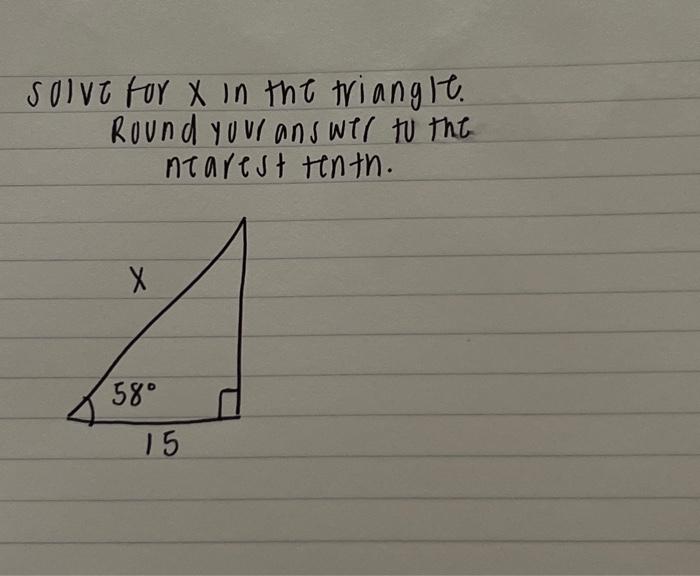 solve for x in the triangle.
Round your answer to the
nearest tenth.
x
58°
15